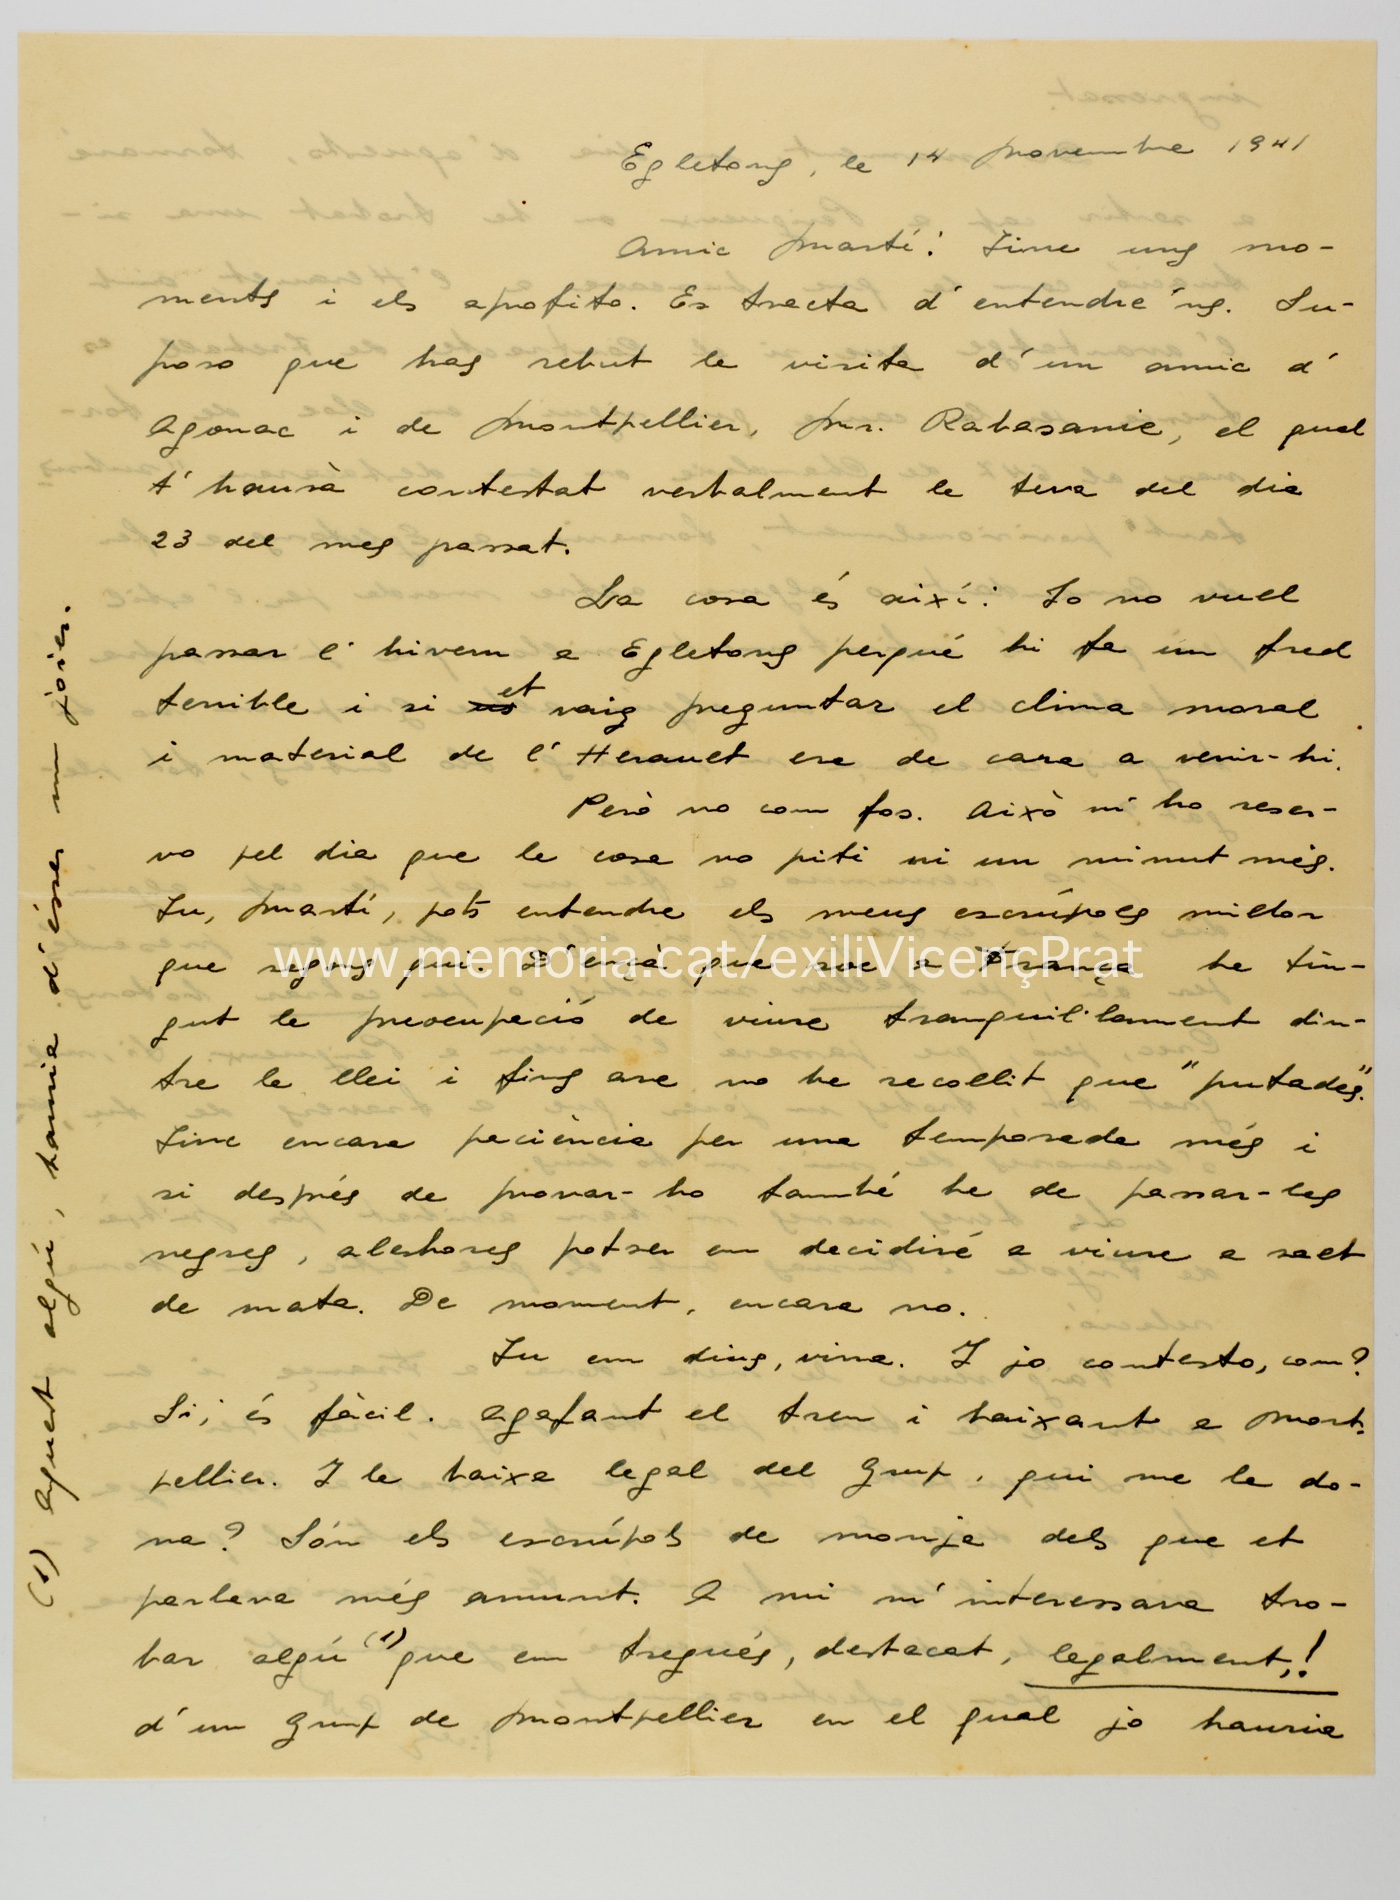 Egletons, le 14 novembre 1941
Amic Martí: Tinc uns mo-
ments i els aprofito. Es tracta d'entendre'ns. Su-
poso que has rebut la visita d'un amic d'
Agonac i de Montpellier, Mr. Rabasania, el qual
t'haurà contestat verbalment la teva del dia
23 del mes passat.
La cosa és així: Jo no vull
passar l'hivern a Egletons perquè hi fa un fred
terrible i si et vaig preguntar el clima moral
i material de l'Herault era de cara a venir-hi.
Però no com fos. Això m'ho reser-
vo pel dia que la cosa no piti ni un minut més.
Tu, Martí, pots entendre els meus escrúpols millor
que segons qui. D'ençà que soc a França he tin-
gut la preocupació de viure tranquil·lament din-
tre la llei i fins ara no he recollit que "putades".
Tinc encara paciència per una temporada més i
si després de provar-ho també he de passar-les
negres, aleshores potser em decidiré a viure a salt
de mata. De moment, encara no.
Tu em dius, vina. I jo contesto, com?
Si, és fàcil. Agafant el tren i baixant a Mont-
pellier. I la baixa legal del Grup, qui me la do-
na? Són els escrúpols de monja dels que et
parlava més amunt. A mi m'interessava tro-
bar algú (1) que em tregués, destacat, legalment,!
d'un Grup de Montpellier en el qual jo hauria
(1) Aquest algú, hauria d'ésser un
www.memoria.cat/exiliVicençPrat